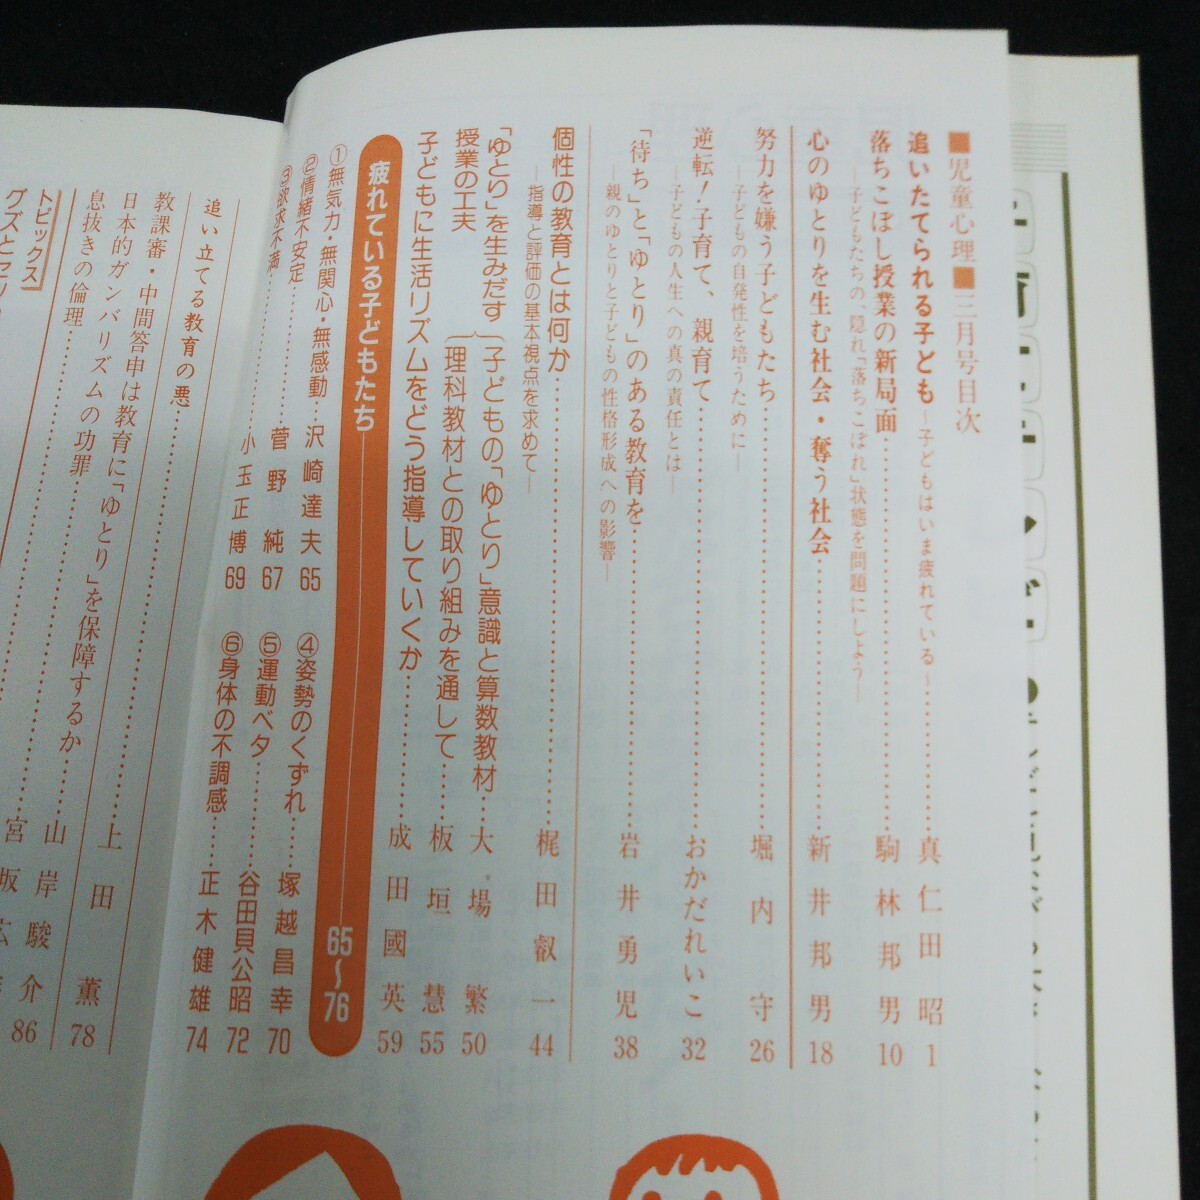 ■児童心理■三月号目次
追いたてられる子ども—子どもはいま疲れている—……真仁田昭 1
落ちこぼし授業の新局面……駒林邦男 10
—子どもたちの、隠れ「落ちこぼれ」状態を問題にしよう—
心のゆとりを生む社会・奪う社会……新井邦男 18
努力を嫌う子どもたち……堀内守 26
—子どもの自発性を培うために—
逆転!子育て、親育て……おかだれいこ 32
—子どもの人生への真の責任とは—
「待ち」と「ゆとり」のある教育を……岩井勇児 38
—親のゆとりと子どもの性格形成への影響—
個性の教育とは何か……梶田叡一 44
—指導と評価の基本視点を求めて—
「ゆとり」を生みだす授業の工夫
子どもの「ゆとり」意識と算数教材……大場繁 50
理科教材との取り組みを通して……板垣慧 55
子どもに生活リズムをどう指導していくか……成田國英 59
疲れている子どもたち 65〜76
①無気力・無関心・無感動…沢崎達夫 65
②情緒不安定……菅野純 67
③欲求不満……小玉正博 69
④姿勢のくずれ……塚越昌幸 70
⑤運動ベタ……谷田貝公昭 72
⑥身体の不調感……正木健雄 74
追い立てる教育の悪……上田薫 78
教課審・中間答申は教育に「ゆとり」を保障するか…山岸駿介 86
日本的ガンバリズムの功罪……宮坂広
息抜きの倫理……
トピックス
グズと